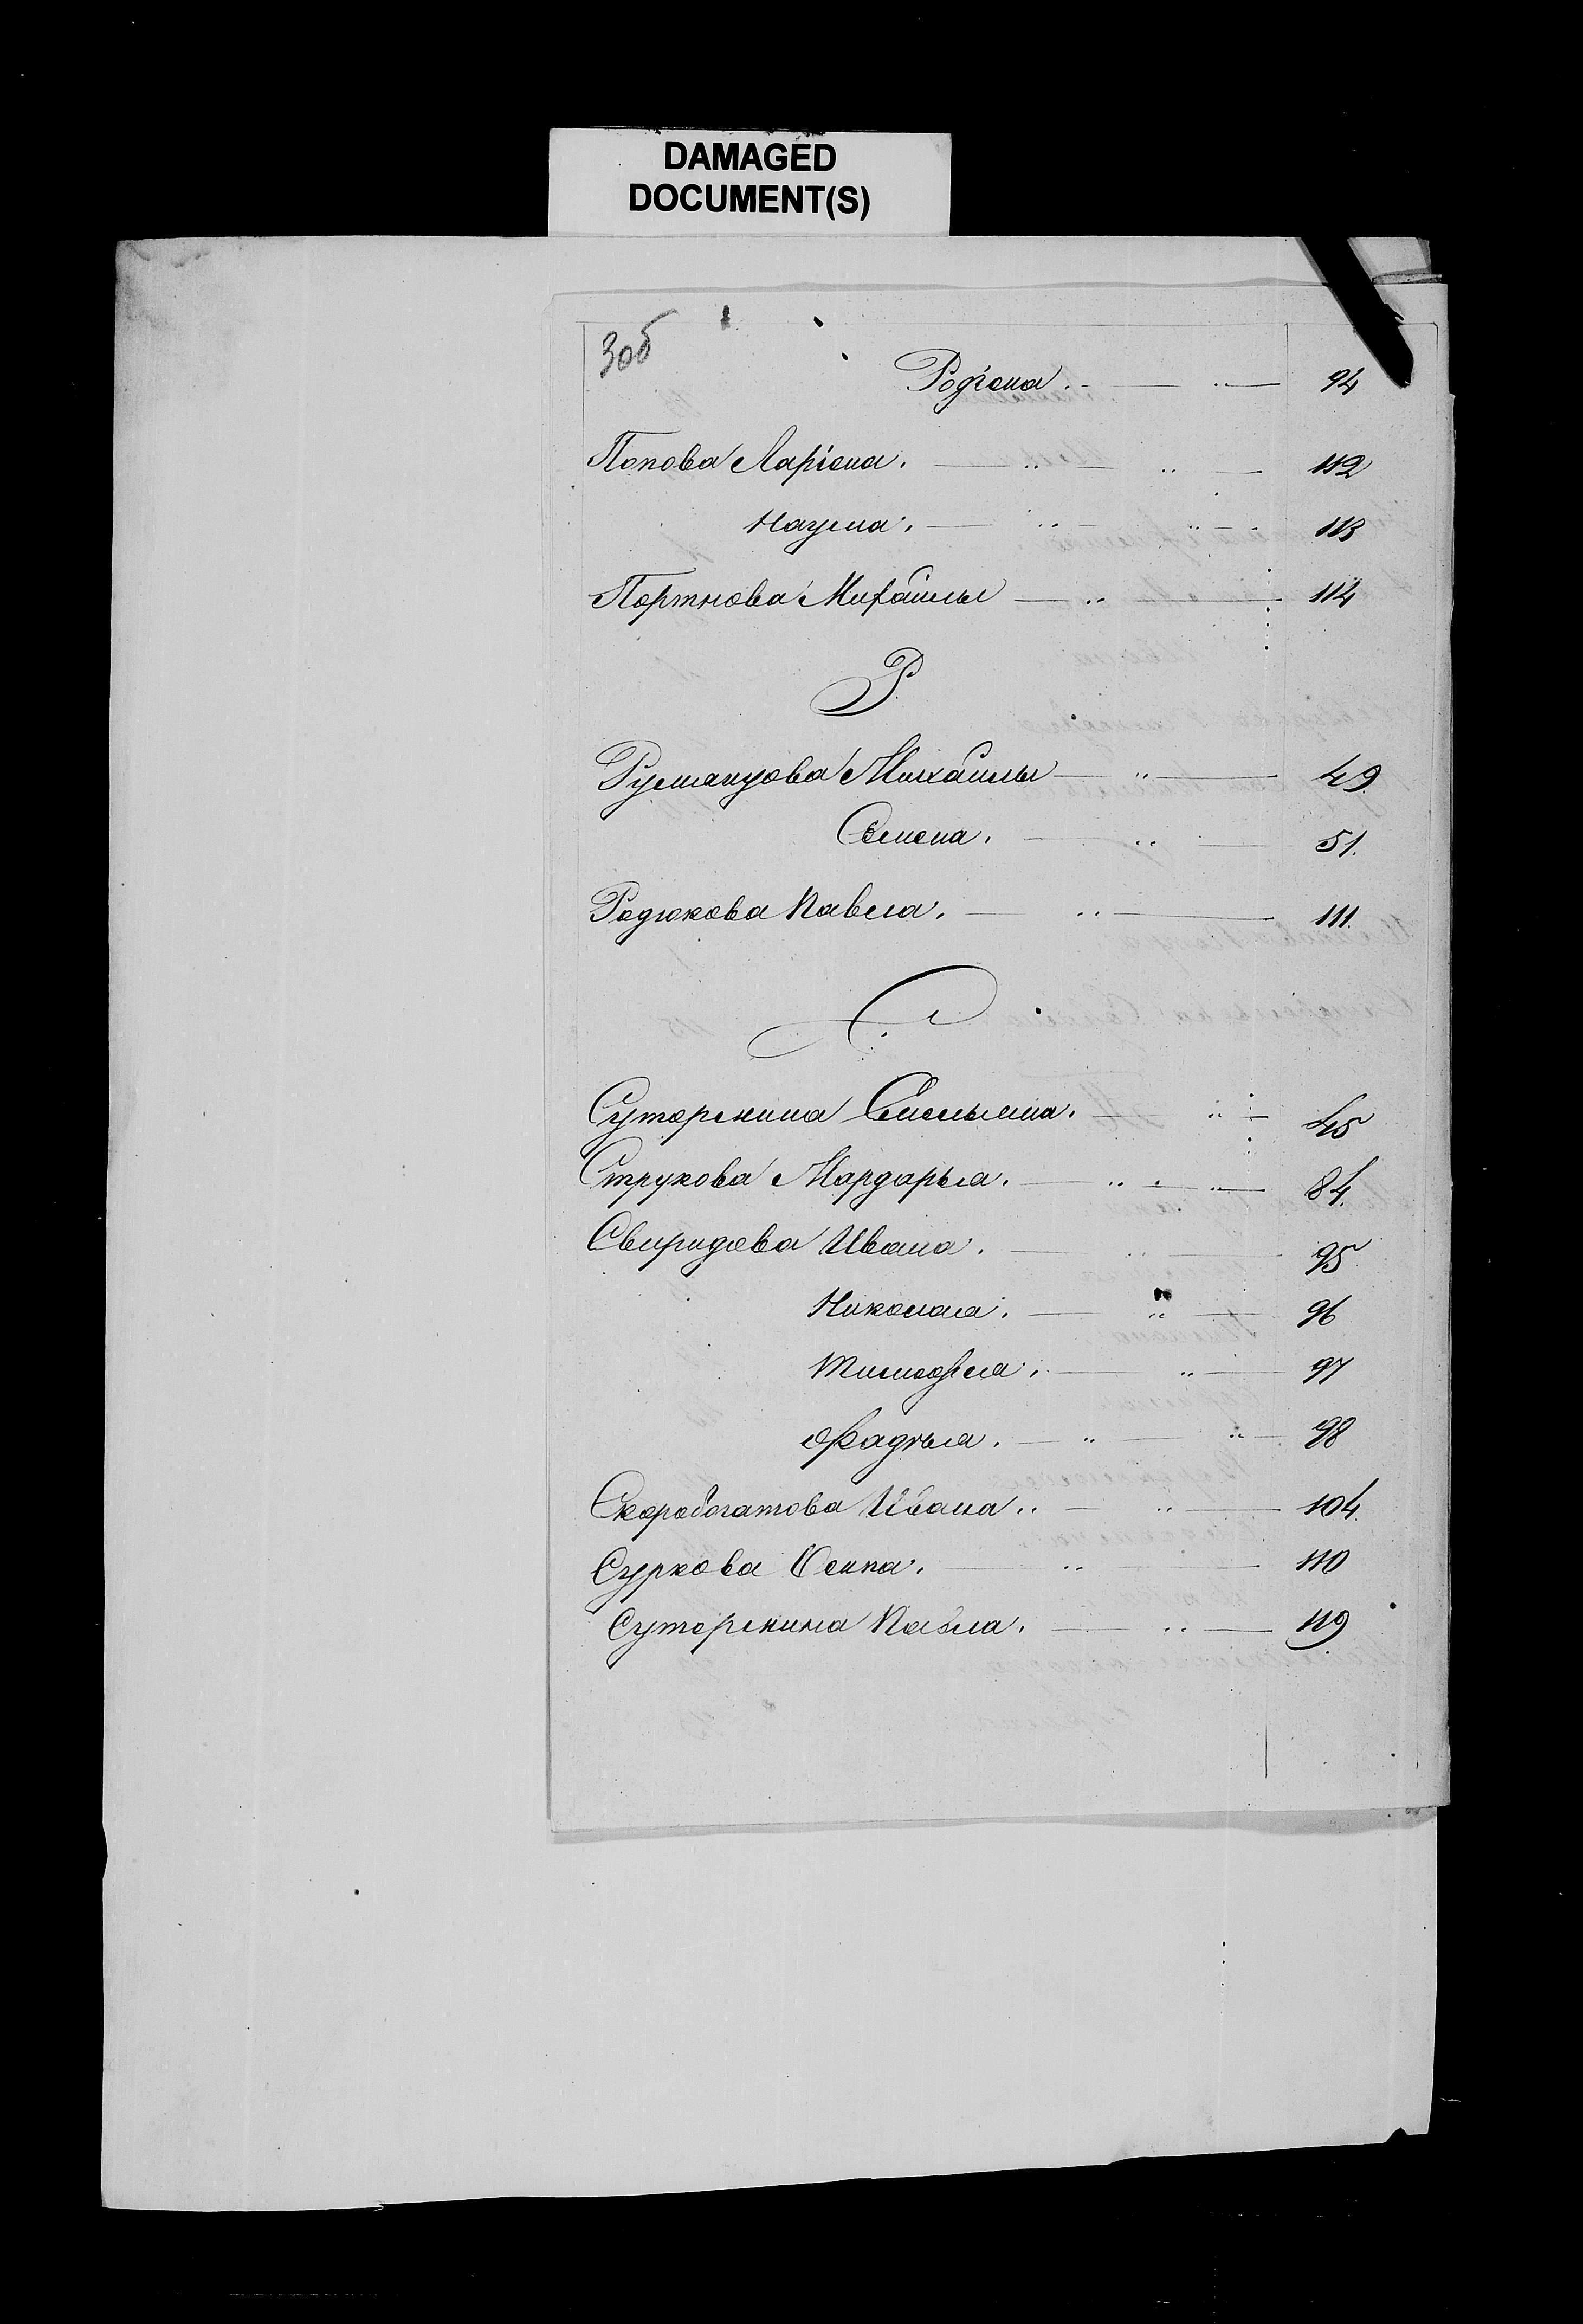 DAMAGED
DOCUMENT(S)
30б
Родіона. 94
Попова Ларіона. 112
Наума. 113
Портнова Михаилы 114
Р.
Румянцова Михаилы 49
Семена. 51.
Родюкова Павла. 111.
С.
Сутормина 45
Струкова Мардарья. 84.
Свиридова Ивана. 95
Николая. 96
Тимофея. 97
Фадѣя. 98
Скоробогатова Ивана. 104.
Суркова Осипа. 110
Сутормина Павла. 119